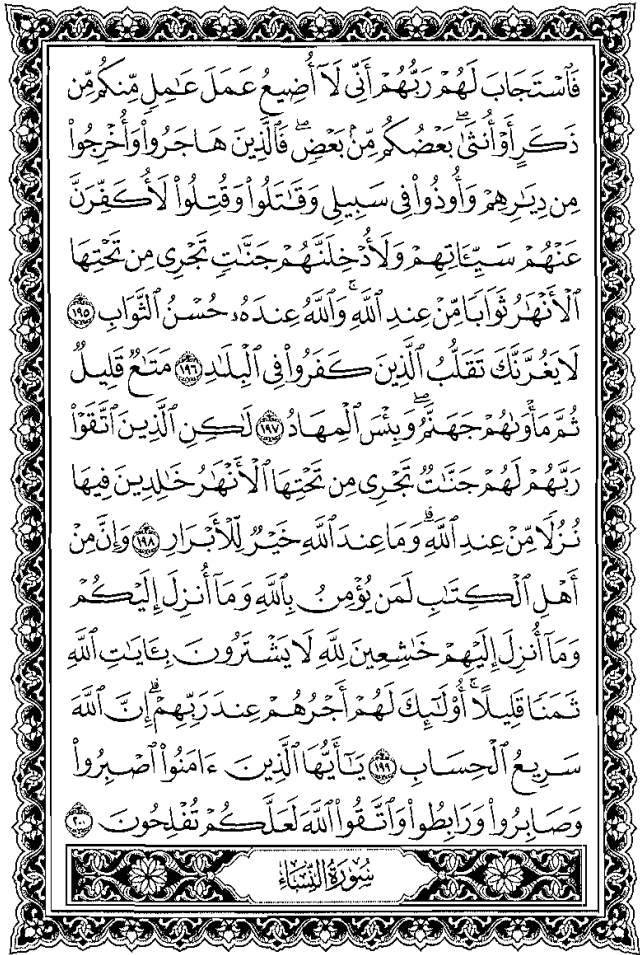 فَٱسْتَجَابَ لَهُمْ رَبُّهُمْ أَنِّى لَآ أُضِيعُ عَمَلَ عَٰمِلٍ مِّنكُم مِّن
ذَكَرٍ أَوْ أُنثَىٰۖ بَعْضُكُم مِّنۢ بَعْضٍۖ فَٱلَّذِينَ هَاجَرُوا۟ وَأُخْرِجُوا۟
مِن دِيَٰرِهِمْ وَأُوذُوا۟ فِى سَبِيلِى وَقَٰتَلُوا۟ وَقُتِلُوا۟ لَأُكَفِّرَنَّ
عَنْهُمْ سَيِّـَٔاتِهِمْ وَلَأُدْخِلَنَّهُمْ جَنَّٰتٍ تَجْرِى مِن تَحْتِهَا
ٱلْأَنْهَٰرُ ثَوَابًا مِّنْ عِندِ ٱللَّهِۗ وَٱللَّهُ عِندَهُۥ حُسْنُ ٱلثَّوَابِ ١٩٥
لَا يَغُرَّنَّكَ تَقَلُّبُ ٱلَّذِينَ كَفَرُوا۟ فِى ٱلْبِلَٰدِ ١٩٦ مَتَٰعٌ قَلِيلٌ
ثُمَّ مَأْوَىٰهُمْ جَهَنَّمُۖ وَبِئْسَ ٱلْمِهَادُ ١٩٧ لَٰكِنِ ٱلَّذِينَ ٱتَّقَوْا۟
رَبَّهُمْ لَهُمْ جَنَّٰتٌ تَجْرِى مِن تَحْتِهَا ٱلْأَنْهَٰرُ خَٰلِدِينَ فِيهَا
نُزُلًا مِّنْ عِندِ ٱللَّهِۗ وَمَا عِندَ ٱللَّهِ خَيْرٌ لِّلْأَبْرَارِ ١٩٨ وَإِنَّ مِنْ
أَهْلِ ٱلْكِتَٰبِ لَمَن يُؤْمِنُ بِٱللَّهِ وَمَآ أُنزِلَ إِلَيْكُمْ
وَمَآ أُنزِلَ إِلَيْهِمْ خَٰشِعِينَ لِلَّهِ لَا يَشْتَرُونَ بِـَٔايَٰتِ ٱللَّهِ
ثَمَنًا قَلِيلًاۗ أُو۟لَٰٓئِكَ لَهُمْ أَجْرُهُمْ عِندَ رَبِّهِمْۗ إِنَّ ٱللَّهَ
سَرِيعُ ٱلْحِسَابِ ١٩٩ يَٰٓأَيُّهَا ٱلَّذِينَ ءَامَنُوا۟ ٱصْبِرُوا۟
وَصَابِرُوا۟ وَرَابِطُوا۟ وَٱتَّقُوا۟ ٱللَّهَ لَعَلَّكُمْ تُفْلِحُونَ ٢٠٠
سُورَةُ النِّسَاءِ